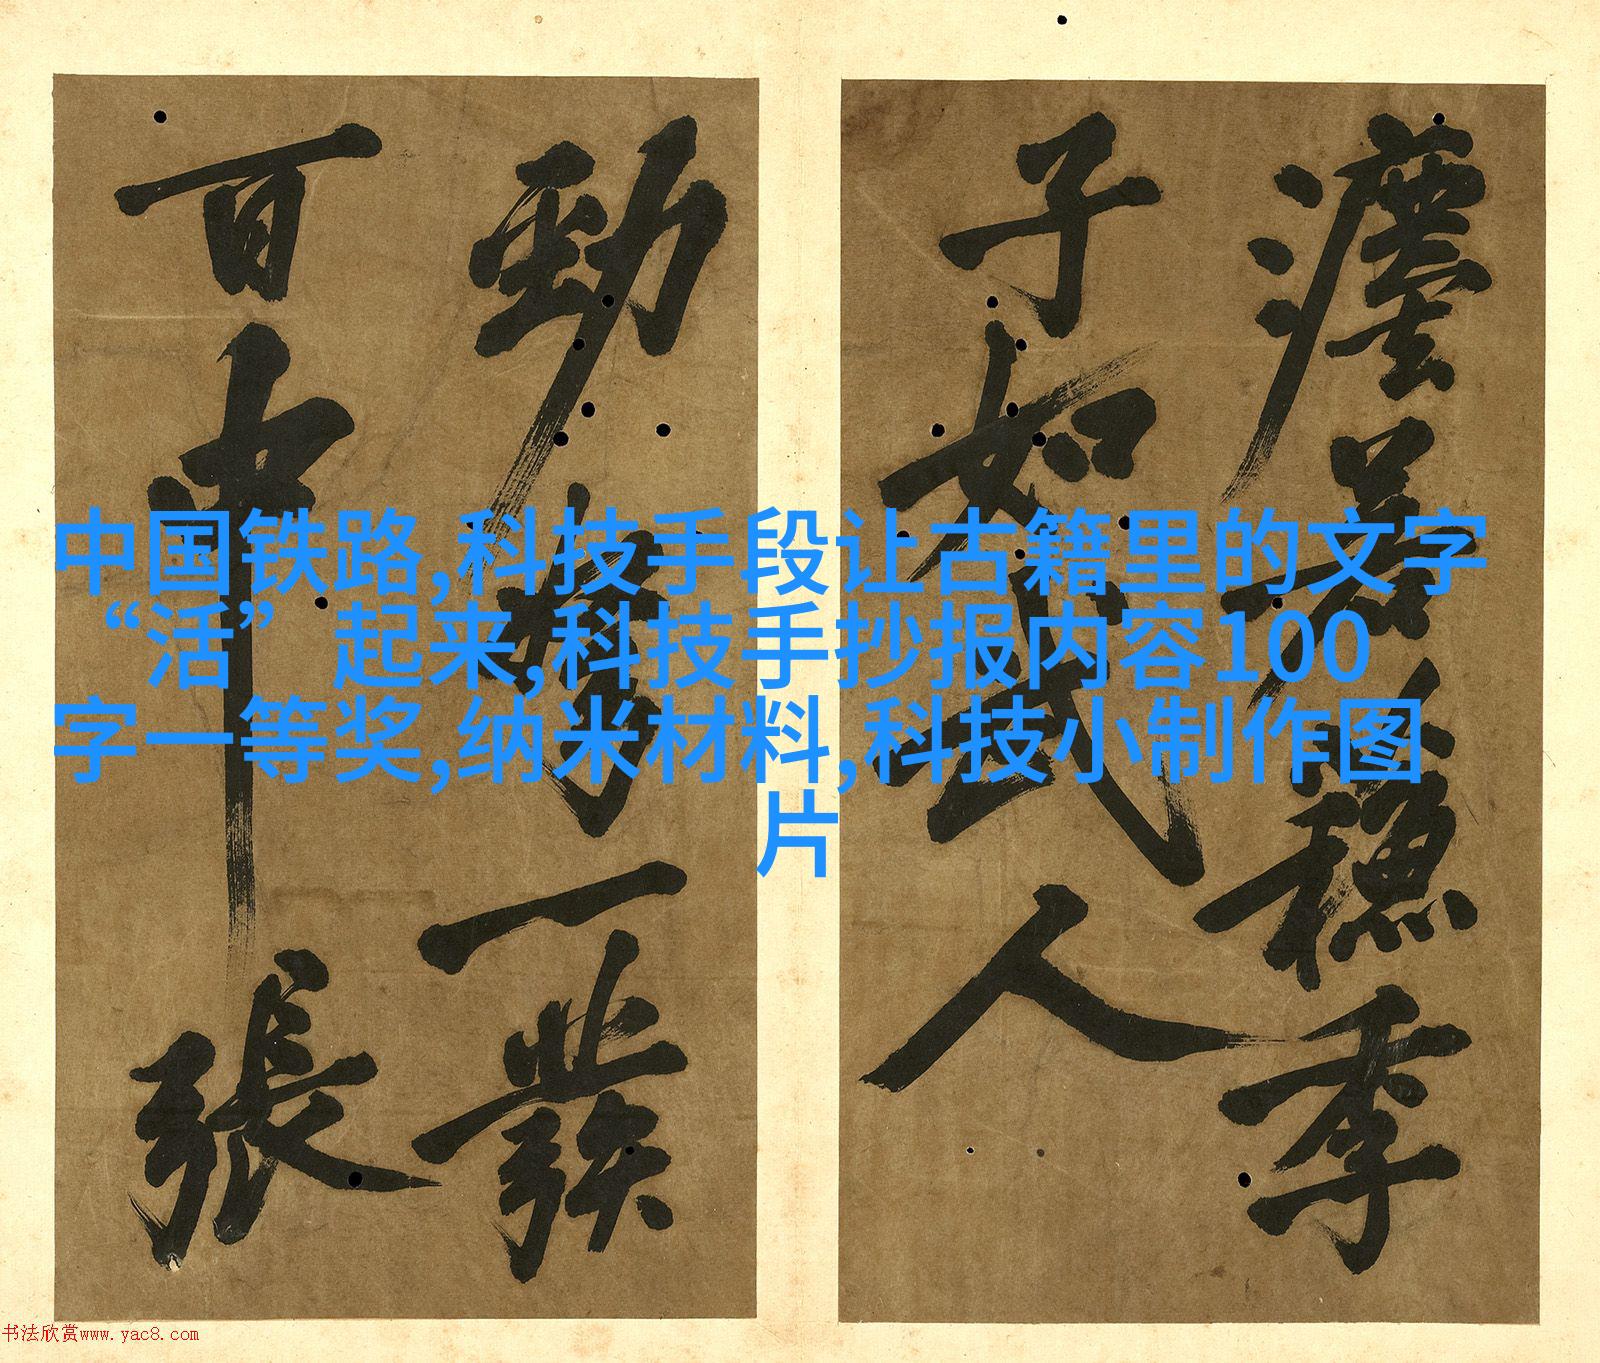 瀍若穩季
子如武人
勁弩一發
百中張
中国铁路,科技手段让古籍里的文字
“活” 起来,科技手抄报内容100
字一等奖,纳米材料,科技小制作图
片
书法欣赏www.yac8.com